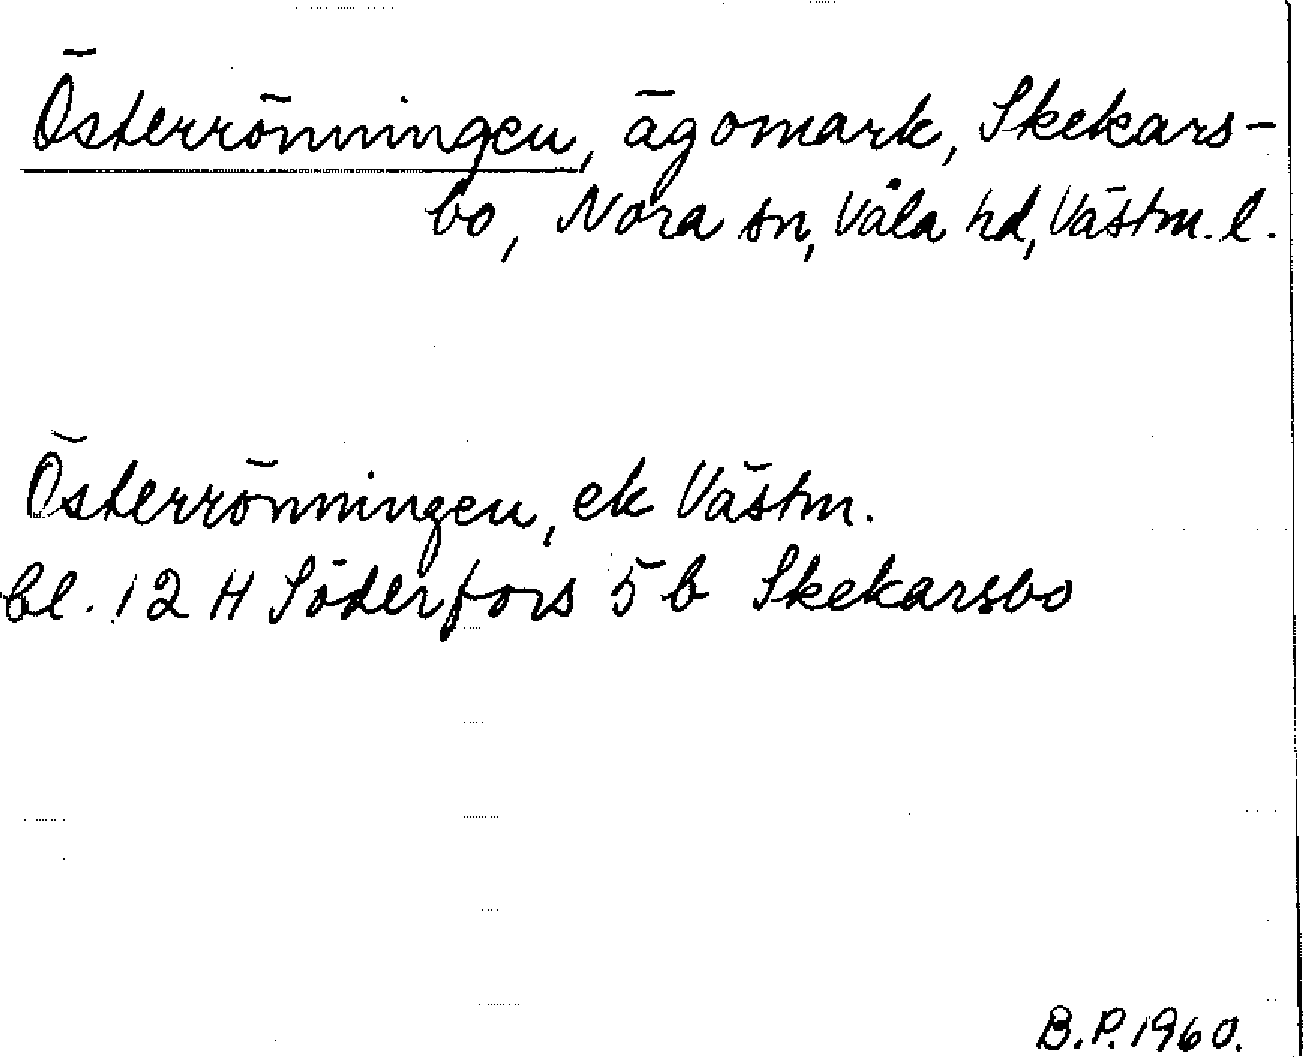 Österrönningen, ägomark, Skekars-
bo, Nora sn, Våla hd, Västm. l.
Österrönningen, ek Västm.
bl. 12 H Söderfors 5 b Skekarsbo
B.P. 1960.